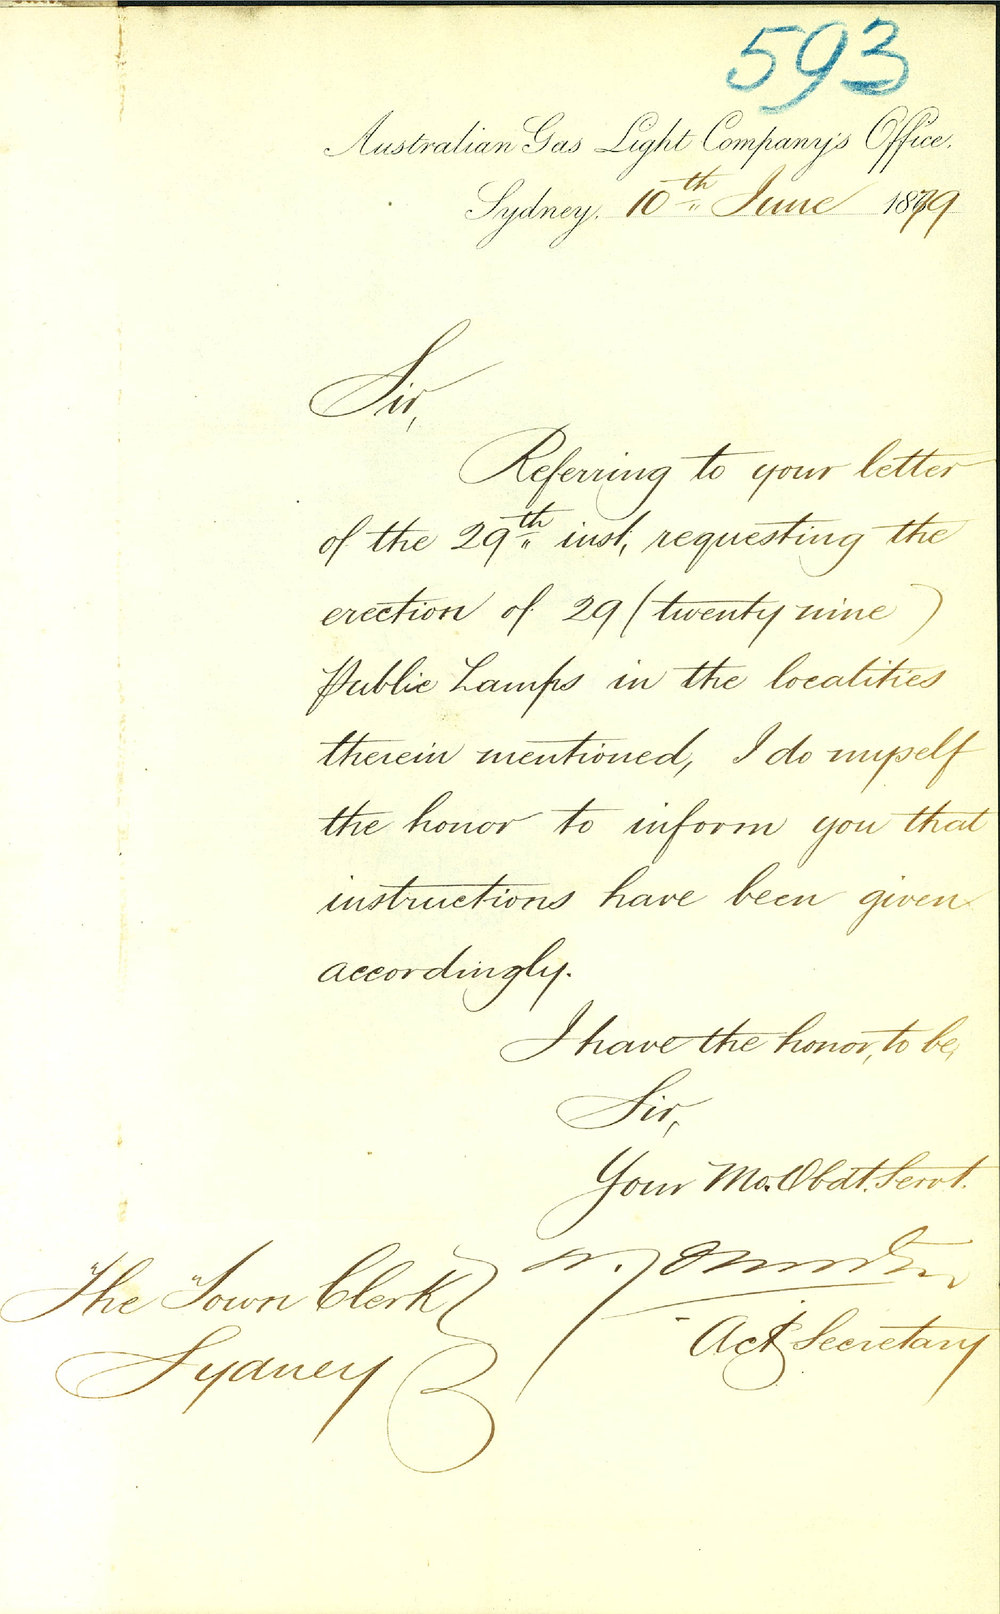 593
Australian Gas Light Company's Office.
Sydney. 10th June 1879
Sir,
Referring to your letter
of the 29th inst, requesting the
erection of 29 (twenty nine)
Public Lamps in the localities
therein mentioned, I do myself
the honor to inform you that
instructions have been given
accordingly.
I have the honor, to be,
Sir,
Your Mo. Obdt. Servt.
Actg Secretary
The Town Clerk
Sydney